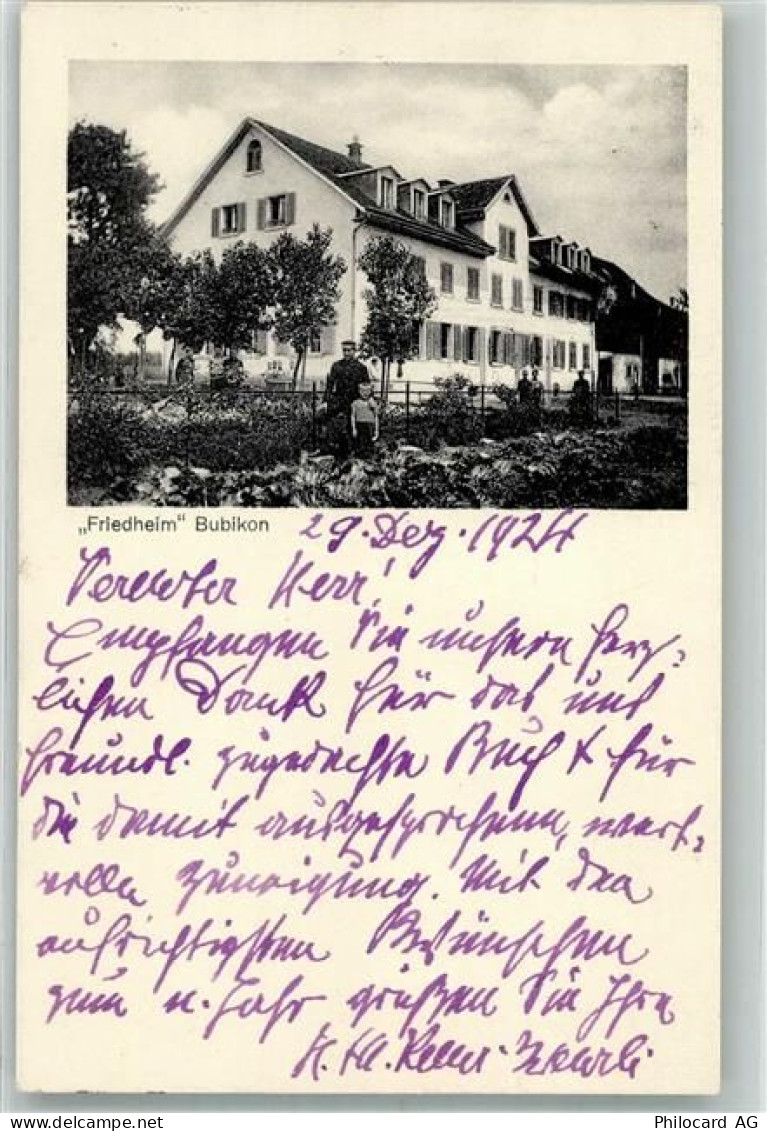 „Friedheim" Bubikon 29. Dez. 1924
Verehrter Herr!
Empfangen Sie unsern herz-
lichen Dank für das uns
freundl. zugedachte Buch & für
die damit ausgesprochene, wert-
volle Zuneigung. Mit den
aufrichtigsten Wünschen
zum n. Jahr grüßen Sie Ihre
H. Keller-
delcampe.net
Philocard AG